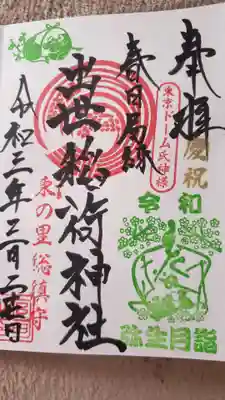 奉拝
慶祝
令和
弥生月詣
東京ドーム氏神様
春日局跡
出世稲荷神社
東の里総鎮守
令和三年三月